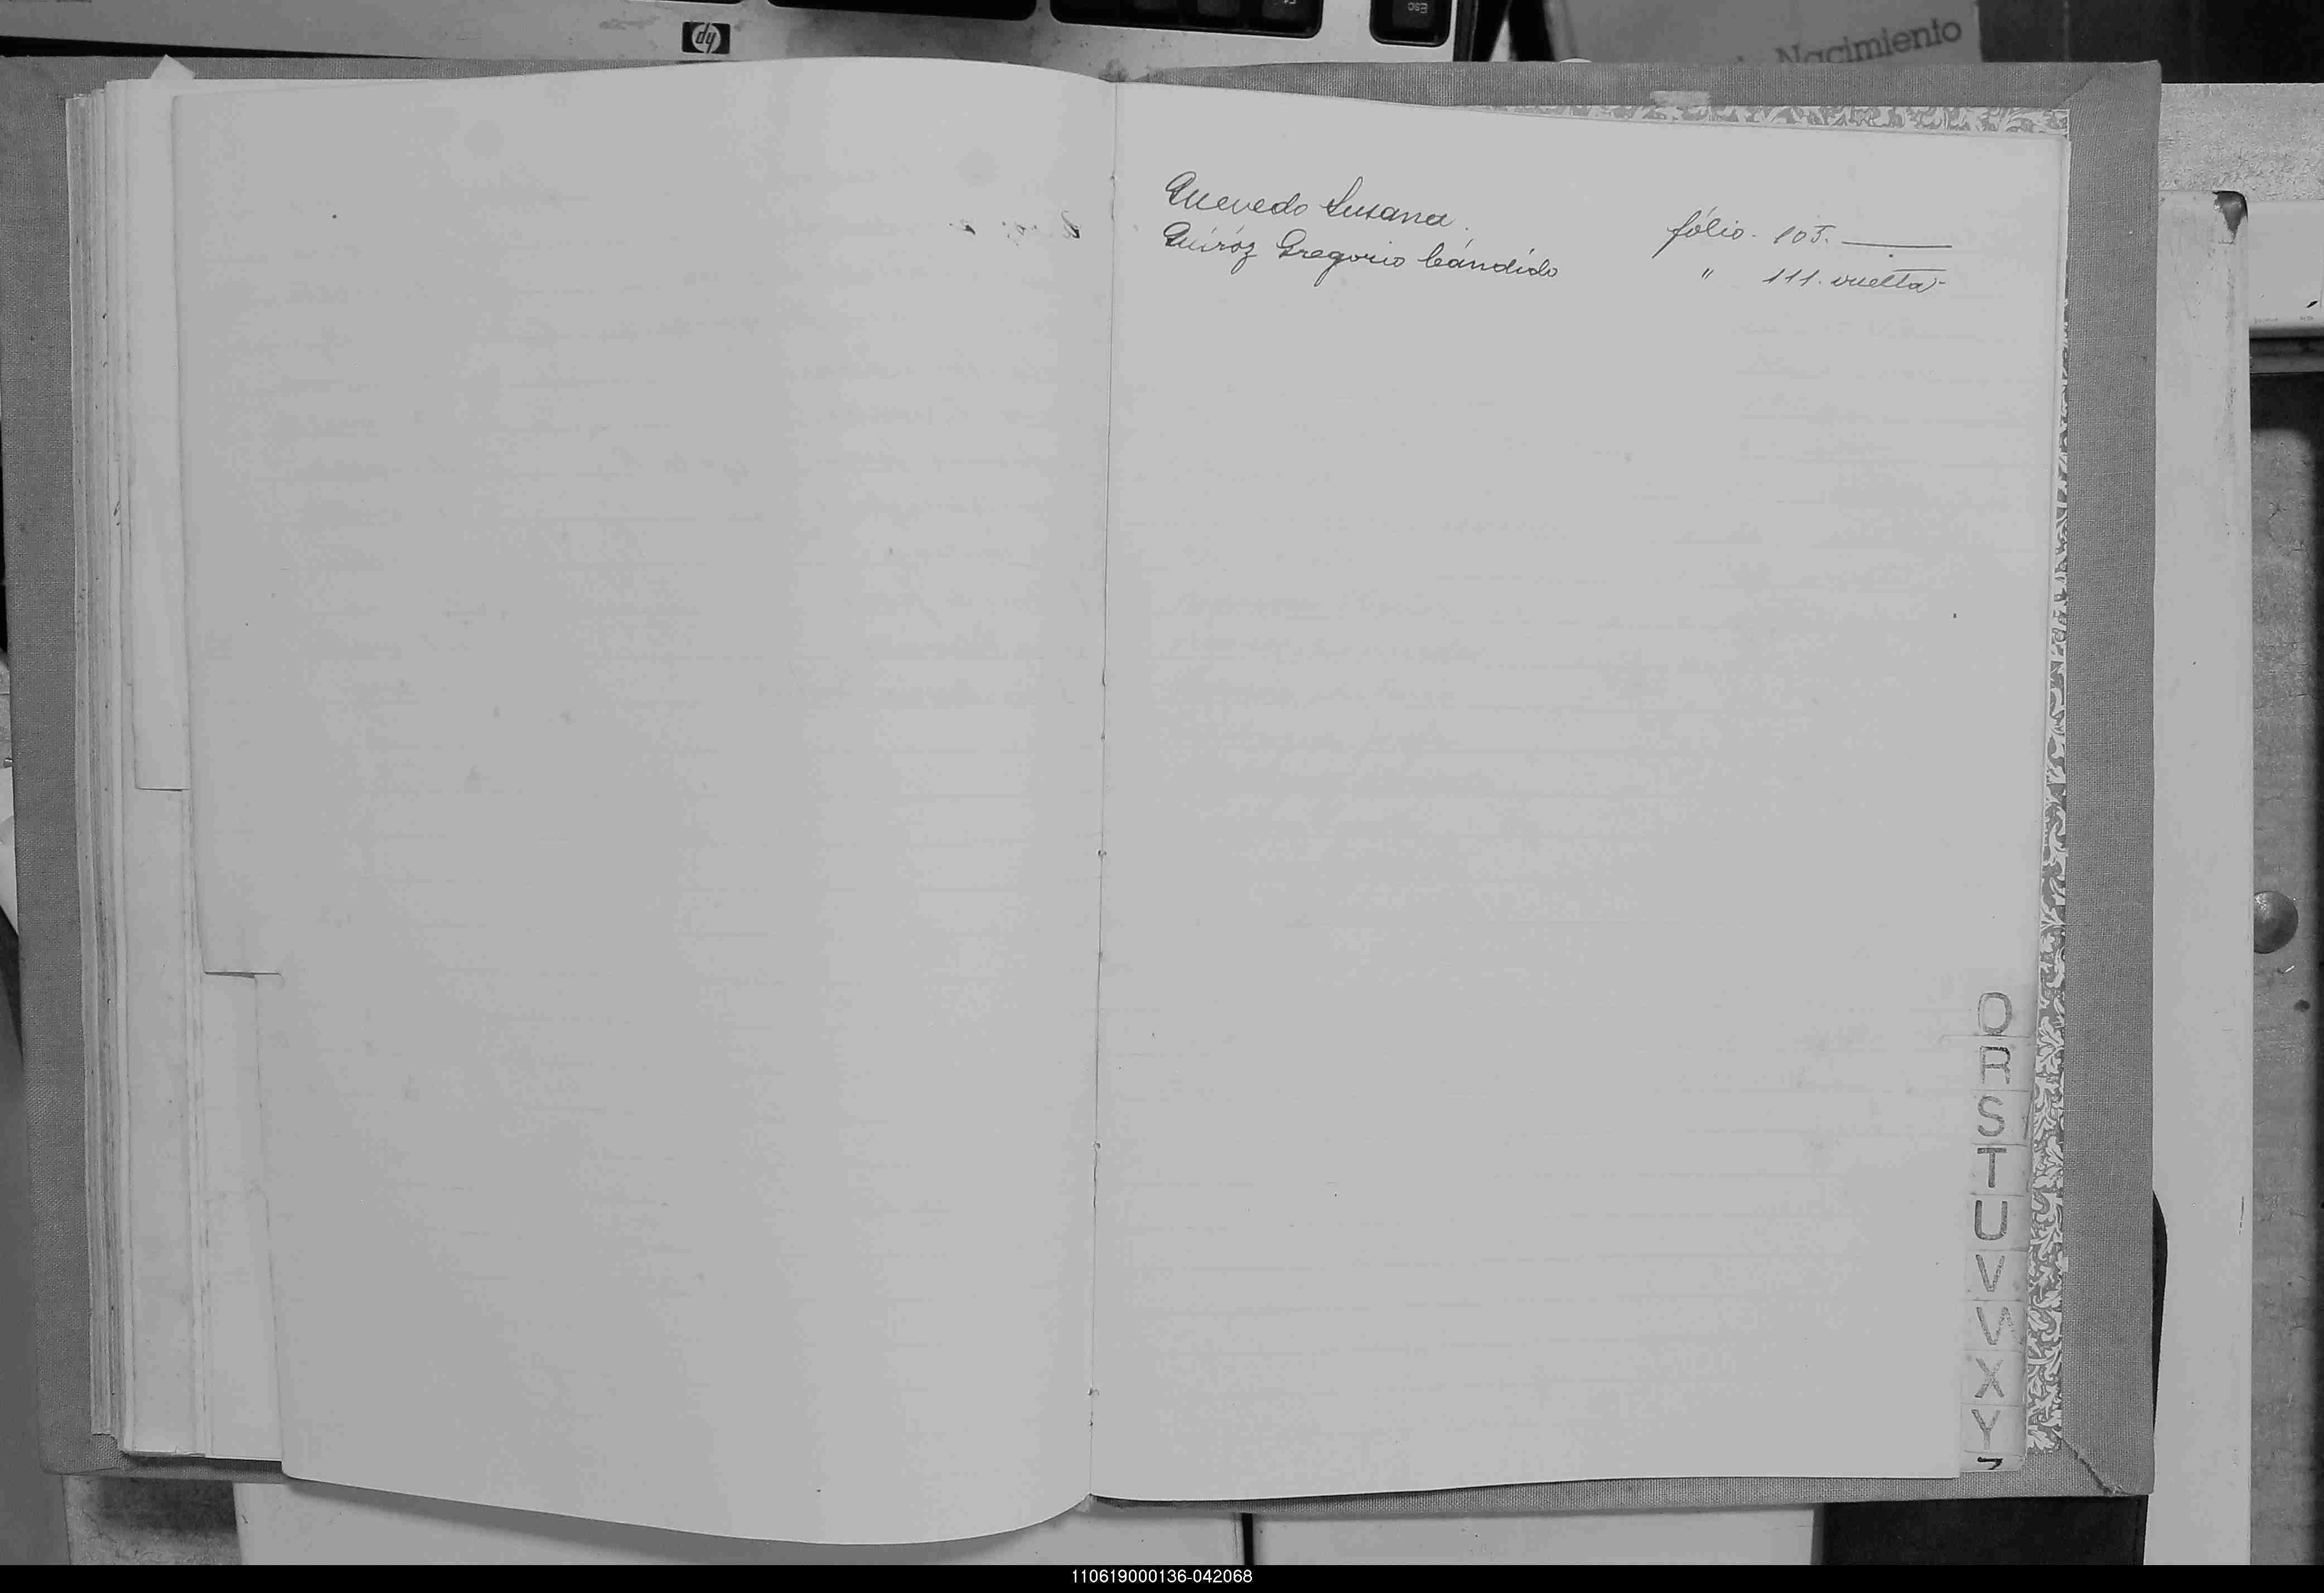 hp
Esc
Nacimiento
Quevedo Susana. fólio. 105.
Quiróz Gregorio Cándido " 111. vuelta
Q
R
S
T
U
V
W
X
Y
110619000136-042068